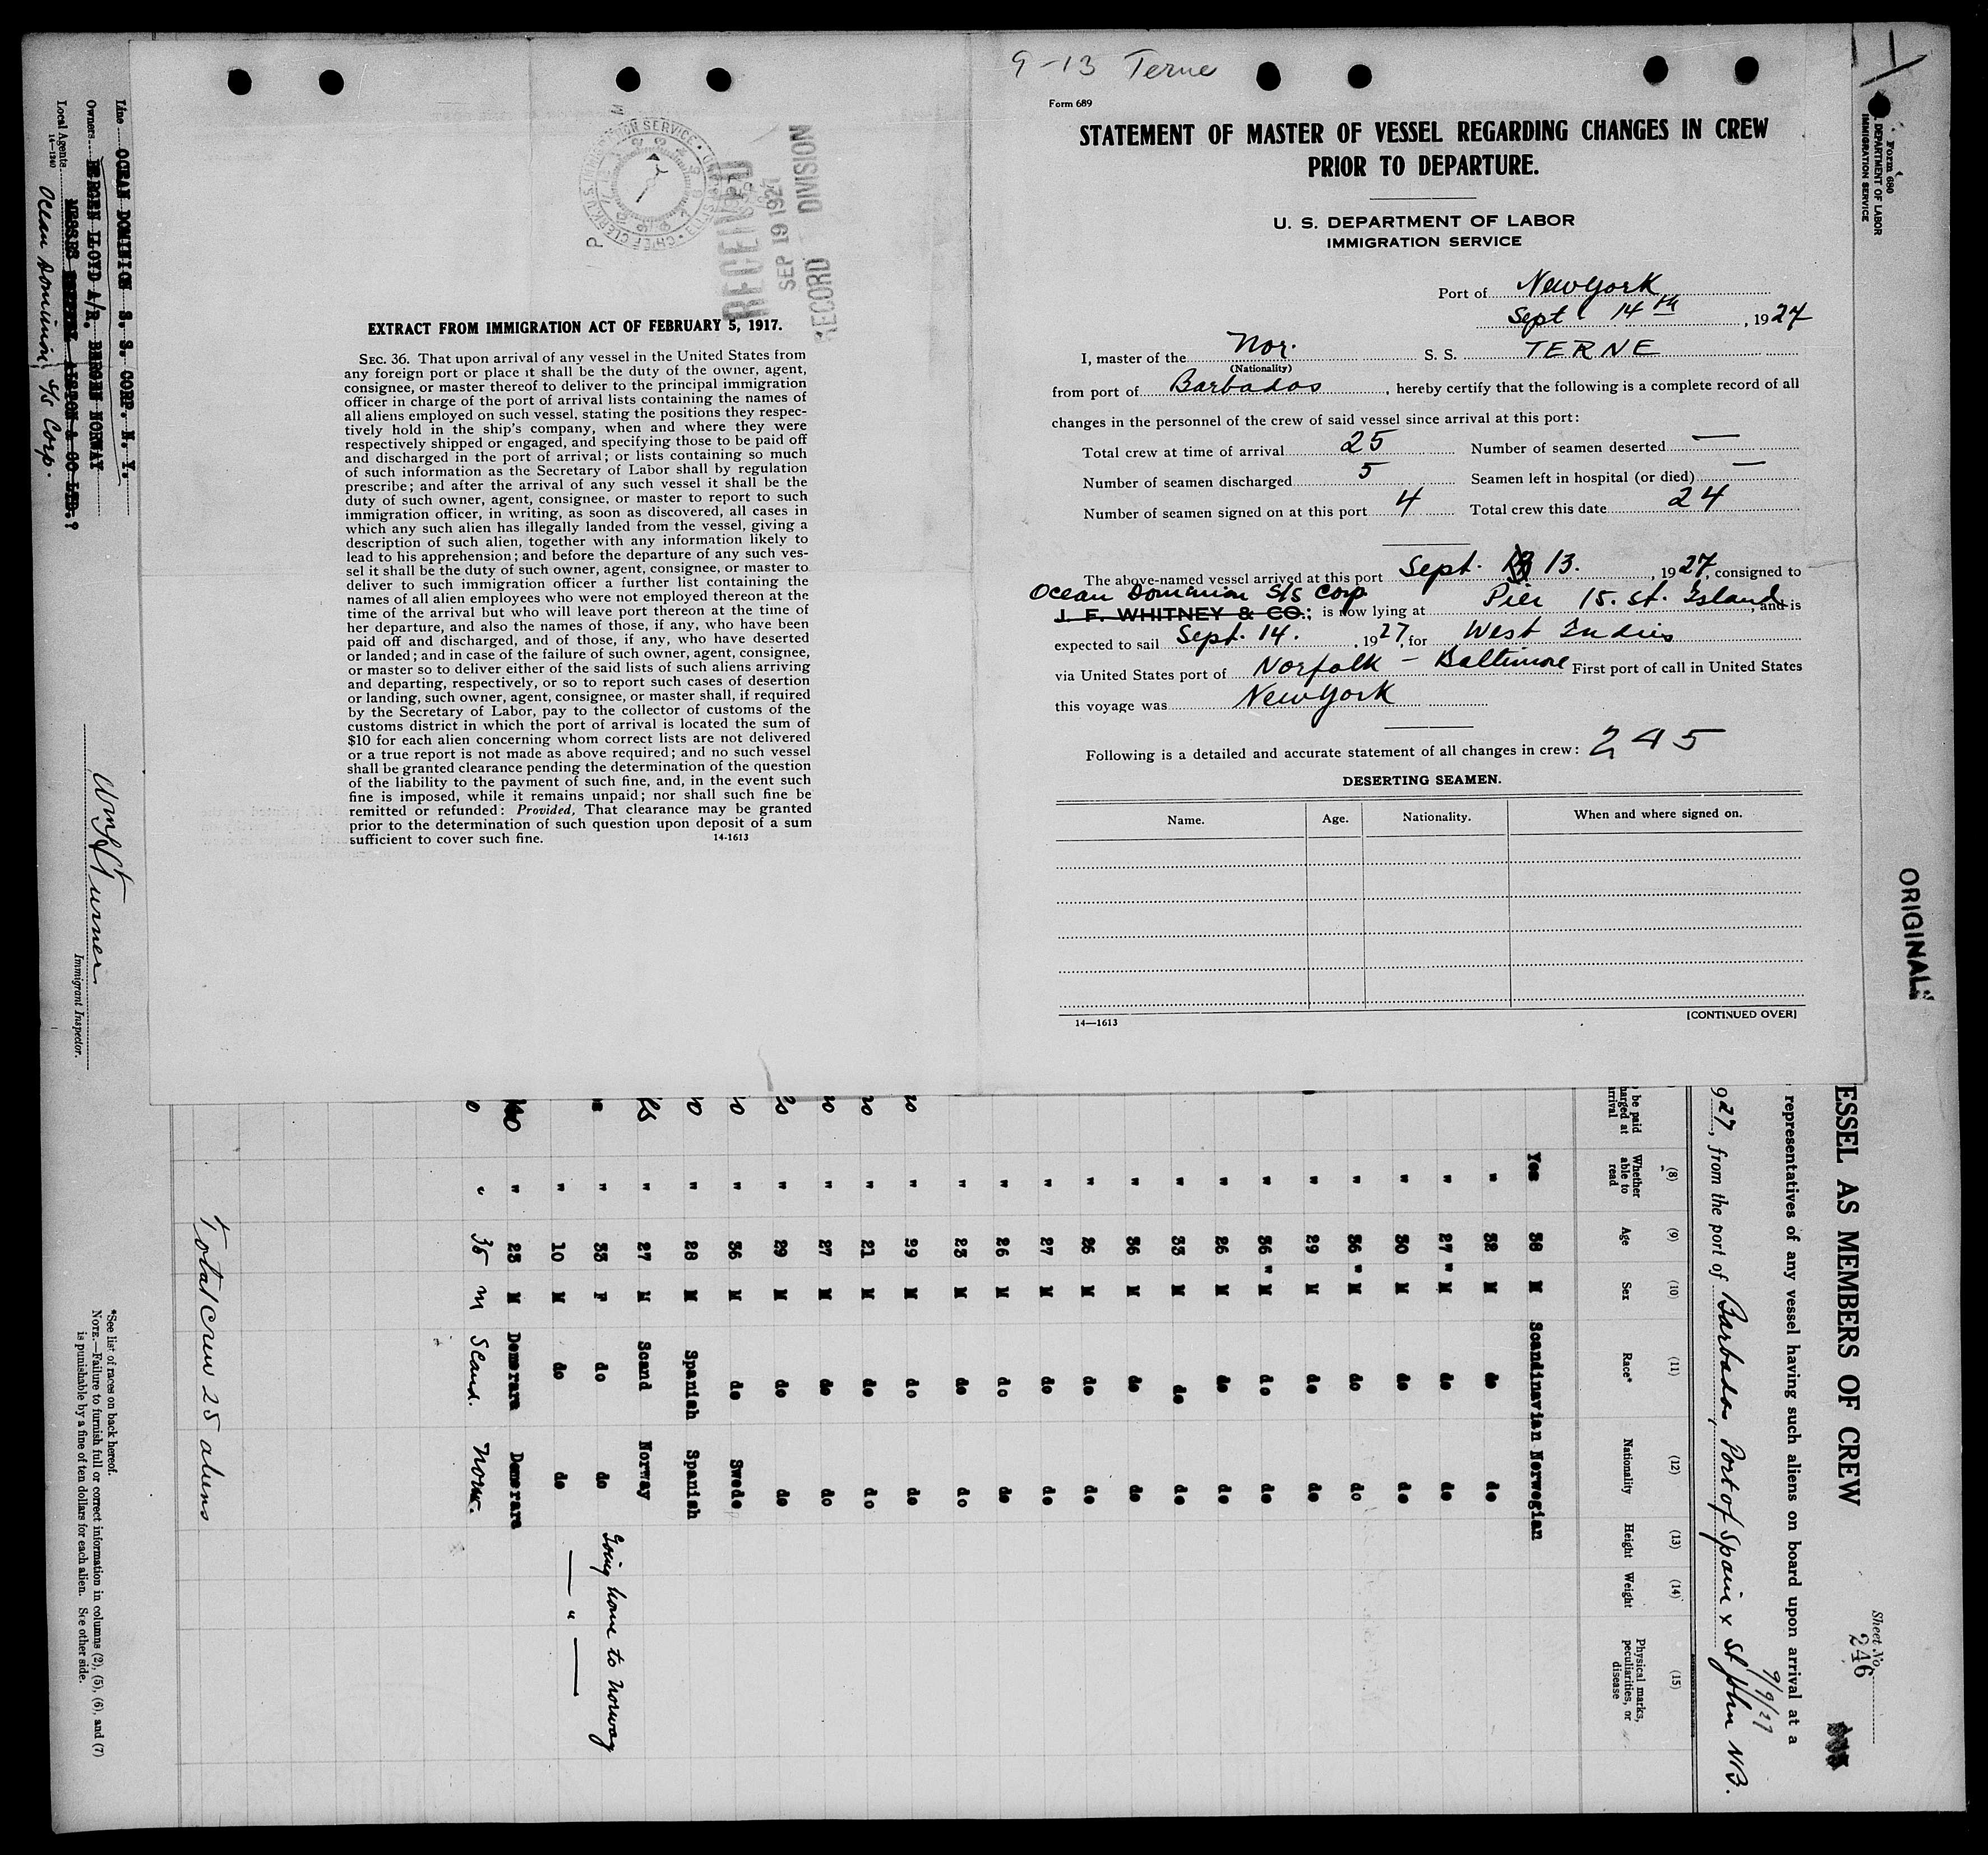 9-13 Terne
Form 689
STATEMENT OF MASTER OF VESSEL REGARDING CHANGES IN CREW
PRIOR TO DEPARTURE.
U. S. DEPARTMENT OF LABOR
IMMIGRATION SERVICE
Port of New York
Sept 14th, 1927
I, master of the Nor. S. S. TERNE
(Nationality)
from port of Barbados, hereby certify that the following is a complete record of all
changes in the personnel of the crew of said vessel since arrival at this port:
Total crew at time of arrival 25 Number of seamen deserted —
Number of seamen discharged 5 Seamen left in hospital (or died) —
Number of seamen signed on at this port 4 Total crew this date 24
The above-named vessel arrived at this port Sept. 13., 1927, consigned to
Ocean Dominion S/S Corp
J. F. WHITNEY & CO.; is now lying at Pier 15. St. Island, and is
expected to sail Sept. 14., 1927, for West Indies
via United States port of Norfolk - Baltimore First port of call in United States
this voyage was New York
Following is a detailed and accurate statement of all changes in crew: 245
DESERTING SEAMEN.
Name. Age. Nationality. When and where signed on.
14—1613 [CONTINUED OVER]
RECEIVED
SEP 19 1927
RECORD DIVISION
EXTRACT FROM IMMIGRATION ACT OF FEBRUARY 5, 1917.
SEC. 36. That upon arrival of any vessel in the United States from
any foreign port or place it shall be the duty of the owner, agent,
consignee, or master thereof to deliver to the principal immigration
officer in charge of the port of arrival lists containing the names of
all aliens employed on such vessel, stating the positions they respec-
tively hold in the ship's company, when and where they were
respectively shipped or engaged, and specifying those to be paid off
and discharged in the port of arrival; or lists containing so much
of such information as the Secretary of Labor shall by regulation
prescribe; and after the arrival of any such vessel it shall be the
duty of such owner, agent, consignee, or master to report to such
immigration officer, in writing, as soon as discovered, all cases in
which any such alien has illegally landed from the vessel, giving a
description of such alien, together with any information likely to
lead to his apprehension; and before the departure of any such ves-
sel it shall be the duty of such owner, agent, consignee, or master to
deliver to such immigration officer a further list containing the
names of all alien employees who were not employed thereon at the
time of the arrival but who will leave port thereon at the time of
her departure, and also the names of those, if any, who have been
paid off and discharged, and of those, if any, who have deserted
or landed; and in case of the failure of such owner, agent, consignee,
or master so to deliver either of the said lists of such aliens arriving
and departing, respectively, or so to report such cases of desertion
or landing, such owner, agent, consignee, or master shall, if required
by the Secretary of Labor, pay to the collector of customs of the
customs district in which the port of arrival is located the sum of
$10 for each alien concerning whom correct lists are not delivered
or a true report is not made as above required; and no such vessel
shall be granted clearance pending the determination of the question
of the liability to the payment of such fine, and, in the event such
fine is imposed, while it remains unpaid; nor shall such fine be
remitted or refunded: Provided, That clearance may be granted
prior to the determination of such question upon deposit of a sum
sufficient to cover such fine. 14-1613
Form 680
DEPARTMENT OF LABOR
IMMIGRATION SERVICE
ORIGINAL
Sheet No.
246
ESSEL AS MEMBERS OF CREW
representatives of any vessel having such aliens on board upon arrival at a
9/9/27
927, from the port of Barbados, Port of Spain & St John NB.
be paid
arged at
rrival
(8) (9) (10) (11) (12) (13) (14) (15)
Whether able to read Age Sex Race* Nationality Height Weight Physical marks, peculiarities, or disease
Yes 38 M Scandinavian Norwegian
" 32 M do do
" 27 " M do do
" 30 M do do
" 36 " M do do
" 29 M do do
" 36 " M do do
" 26 M do do
" 33 M do do
" 36 M do do
" 26 M do do
" 27 M do do
" 26 M do do
" 23 M do do
" 29 M do do
" 21 M do do
" 27 M do do
" 29 M do do
" 36 M do Swede
" 28 M Spanish Spanish
" 27 M Scand Norway
" 33 F do do Going home to Norway
" 10 M do do — " —
" 23 M Demerara Demerara
" 35 M Scand. Norw.
Total crew 25 aliens
*See list of races on back hereof.
NOTE.—Failure to furnish full or correct information in columns (2), (5), (6), and (7)
is punishable by a fine of ten dollars for each alien. See other side.
Line OCEAN DOMINION S. S. CORP. N. Y.
Owners BERGEN LLOYD A/R. BERGEN NORWAY
Local Agents
Ocean Dominion S/S Corp.
14—1240
Immigrant Inspector.